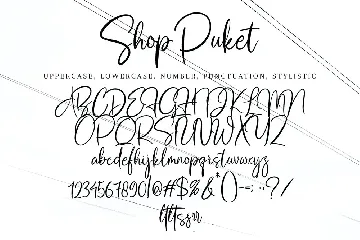 Shop Puket
UPPERCASE, LOWERCASE, NUMBER, PUNCTUATION, STYLISTIC
ABCDEFGHIJKLMN
OPQRSTUVWXYZ
abcdefghijklmnopqrstuvwxyz
1234567890!@#$%&*()-=;:?/